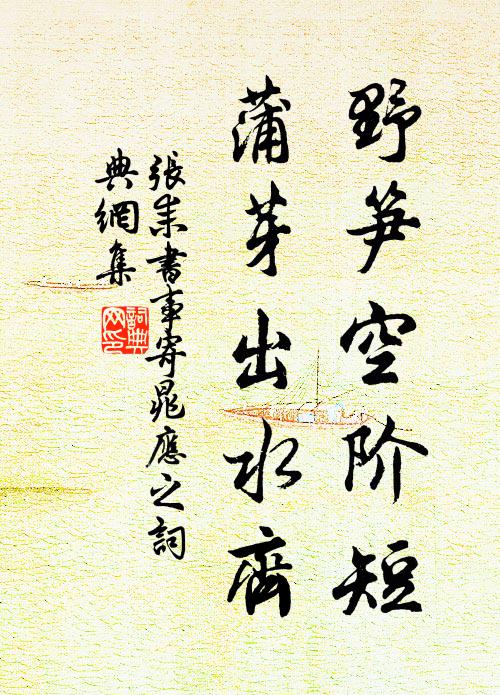 野笋空阶短
蒲芽出水齊
張耒書事寄晁應之詞
典網集
詞典网印